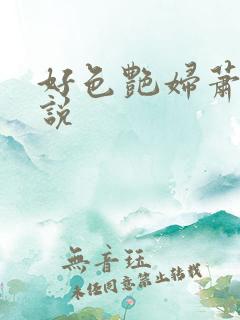 好色艷婦蕭
說
無音珏
未经同意禁止转载